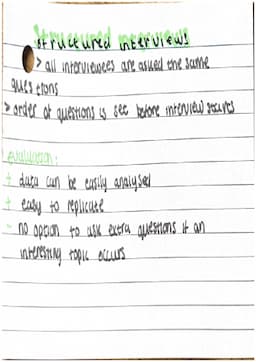 Structured interviews
> all interviewees are asked the same
questions
> order of questions is set before interview starts
evaluation:
+ data can be easily analysed
+ easy to replicate
- no option to ask extra questions if an
interesting topic occurs